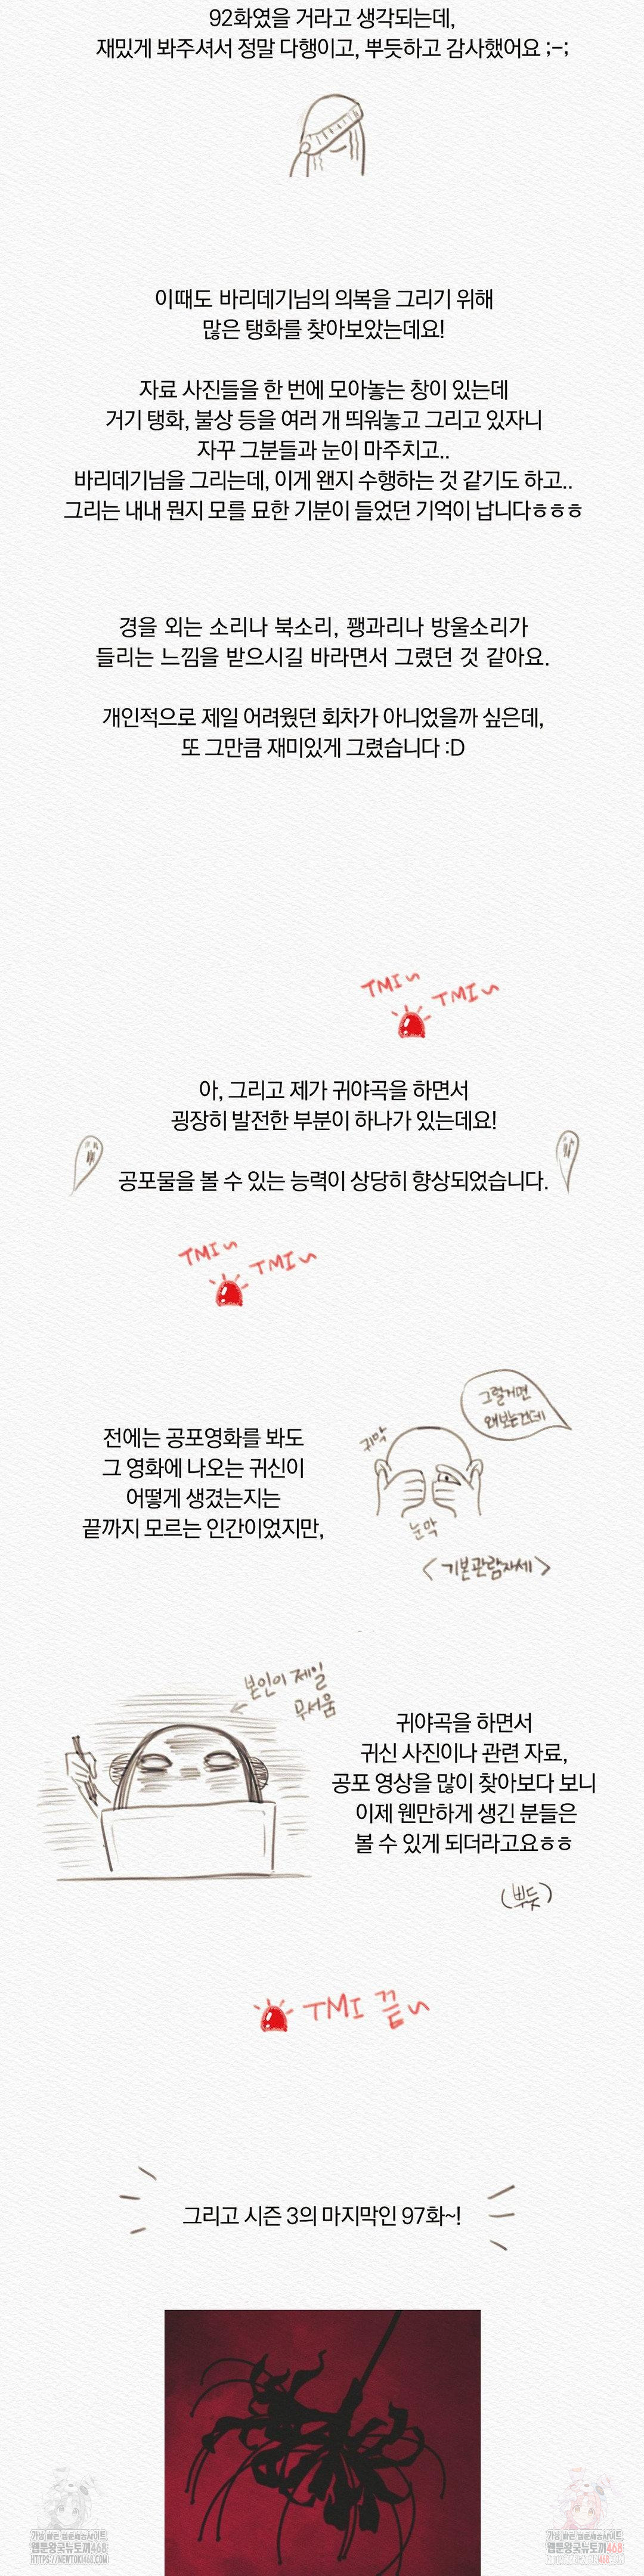 92화였을 거라고 생각되는데,
재밌게 봐주셔서 정말 다행이고, 뿌듯하고 감사했어요 ;-;
이때도 바리데기님의 의복을 그리기 위해
많은 탱화를 찾아보았는데요!
자료 사진들을 한 번에 모아놓는 창이 있는데
거기 탱화, 불상 등을 여러 개 띄워놓고 그리고 있자니
자꾸 그분들과 눈이 마주치고..
바리데기님을 그리는데, 이게 왠지 수행하는 것 같기도 하고..
그리는 내내 뭔지 모를 묘한 기분이 들었던 기억이 납니다ㅎㅎㅎ
경을 외는 소리나 북소리, 꽹과리나 방울소리가
들리는 느낌을 받으시길 바라면서 그렸던 것 같아요.
개인적으로 제일 어려웠던 회차가 아니었을까 싶은데,
또 그만큼 재미있게 그렸습니다 :D
TMI~
TMI~
아, 그리고 제가 귀야곡을 하면서
굉장히 발전한 부분이 하나가 있는데요!
공포물을 볼 수 있는 능력이 상당히 향상되었습니다.
TMI~
TMI~
그럴거면
왜보는건데
귀막
전에는 공포영화를 봐도
그 영화에 나오는 귀신이
어떻게 생겼는지는
끝까지 모르는 인간이었지만,
눈막
<기본관람자세>
본인이 제일
무서움
귀야곡을 하면서
귀신 사진이나 관련 자료,
공포 영상을 많이 찾아보다 보니
이제 웬만하게 생긴 분들은
볼 수 있게 되더라고요ㅎㅎ
(뿌듯)
TMI 끝~
그리고 시즌 3의 마지막인 97화~!
가장 빠른 웹툰배송사이트
웹툰왕국뉴토끼468
HTTPS://NEWTOKI468.COM
웹툰왕국뉴토끼468